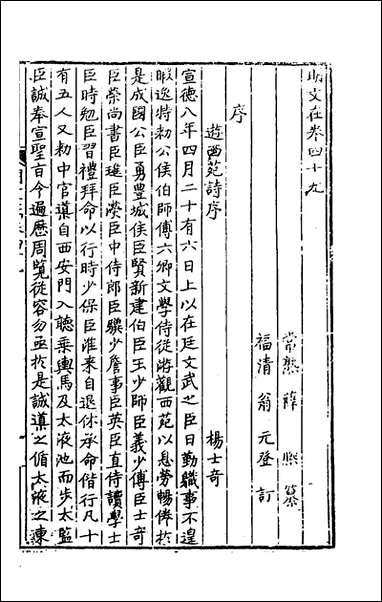 明文在卷四十九
常熟 薛 熙 纂
福清 翁 元登 訂
序
遊西苑詩序 楊士奇
宣德八年四月二十有六日上以在廷文武之臣日勤職事不遑
暇逸特勅公侯伯師傅六卿文學侍從游觀西苑以息勞暢倦於
是成國公臣勇豐城侯臣賢新建伯臣玉少師臣義少傅臣士奇
臣榮尚書臣璡臣濙臣中侍郎臣驥少詹事臣英臣直侍讀學士
臣時勉臣習禮拜命以行時少保臣淮來自退休承命偕行凡十
有五人又勅中官導自西安門入聽乘輿馬及太液池而步太監
臣誠奉宣聖旨令遍歷周覽從容勿亟於是誠導之循太液之東